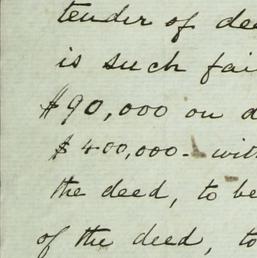 tender of dee
is such fai
$90,000 on d
$400,000- with
the deed, to be
of the deed, to